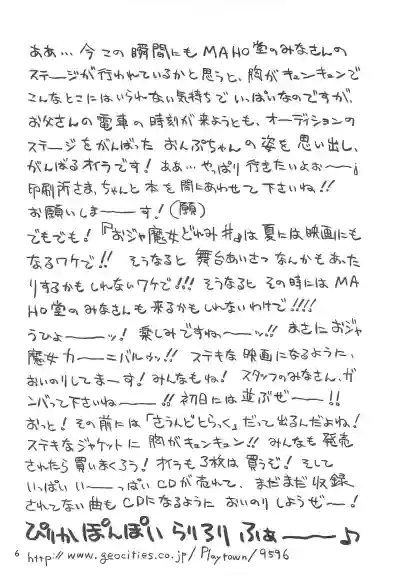 ああ…今この瞬間にもMAHO堂のみなさんの
ステージが行われているかと思うと、胸がキュンキュンで
こんなとこにはいられない気持ちでいっぱいなのですが、
お父さんの電車の時刻が来ようとも、オーディションの
ステージをがんばったおんぷちゃんの姿を思い出し、
がんばるオイラです！ああ…やっぱり行きたいよぉ〜〜；
印刷所さま、ちゃんと本を間にあわせて下さいね!!
お願いしま――す！(願)
でもでも！『おジャ魔女どれみ#』は夏には映画にも
なるワケで!!そうなると舞台あいさつなんかもあった
りするかもしれないワケで!!!そうなるとその時にはMA
HO堂のみなさんも来るかもしれないわけで!!!!
うひょ――ッ！楽しみですね――ッ!!まさにおジャ
魔女カーニバルゥッ!!ステキな映画になるように、
おいのりしてまーす！みんなもね！スタッフのみなさん、ガ
ンバって下さいね――!!初日には並ぶぜ――!!
おっと！その前には「さうんどとらっく」だって出るんだよね！
ステキなジャケットに胸がキュンキュン!!みんなも発売
されたら買いまくろう！オイラも3枚は買うぞ！そして
いっぱいい――っぱいCDが売れて、まだまだ収録
されてない曲もCDになるようにおいのりしようぜ―！
ぴりかぽんぽいらりろりふぁ――♪
6 http://www.geocities.co.jp/Playtown/9596